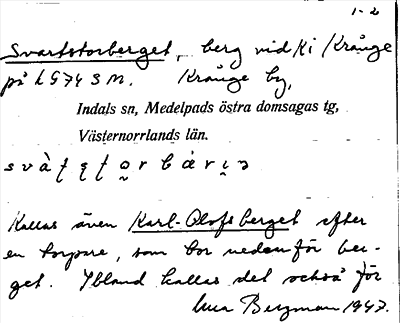 1-2
Svartstorberget, berg vid Ki / Krånge
på LG 74 S M. Krånge by,
Indals sn, Medelpads östra domsagas tg,
Västernorrlands län.
Kallas även Karl-Olofsberget efter
en torpare, som bor nedanför ber-
get. Ibland kallas det också för
Bergman 1947.